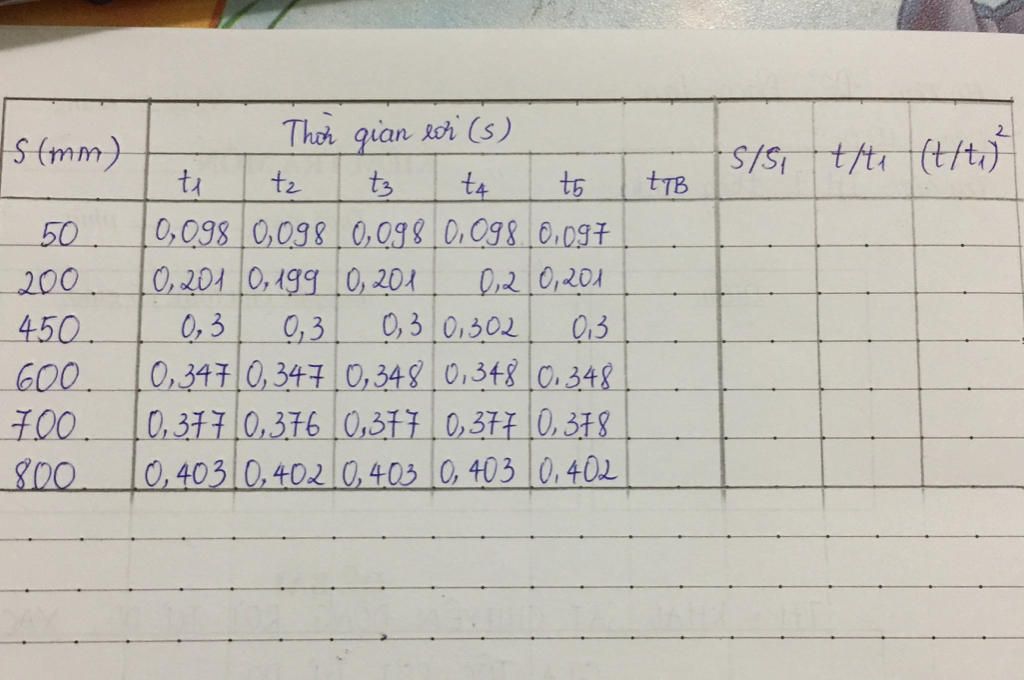 S (mm) Thời gian rơi (s) S/S1 t/t1 (t/t1)²
t1 t2 t3 t4 t5 tTB
50 0,098 0,098 0,098 0,098 0,097
200 0,201 0,199 0,201 0,2 0,201
450 0,3 0,3 0,3 0,302 0,3
600 0,347 0,347 0,348 0,348 0,348
700 0,377 0,376 0,377 0,377 0,378
800 0,403 0,402 0,403 0,403 0,402